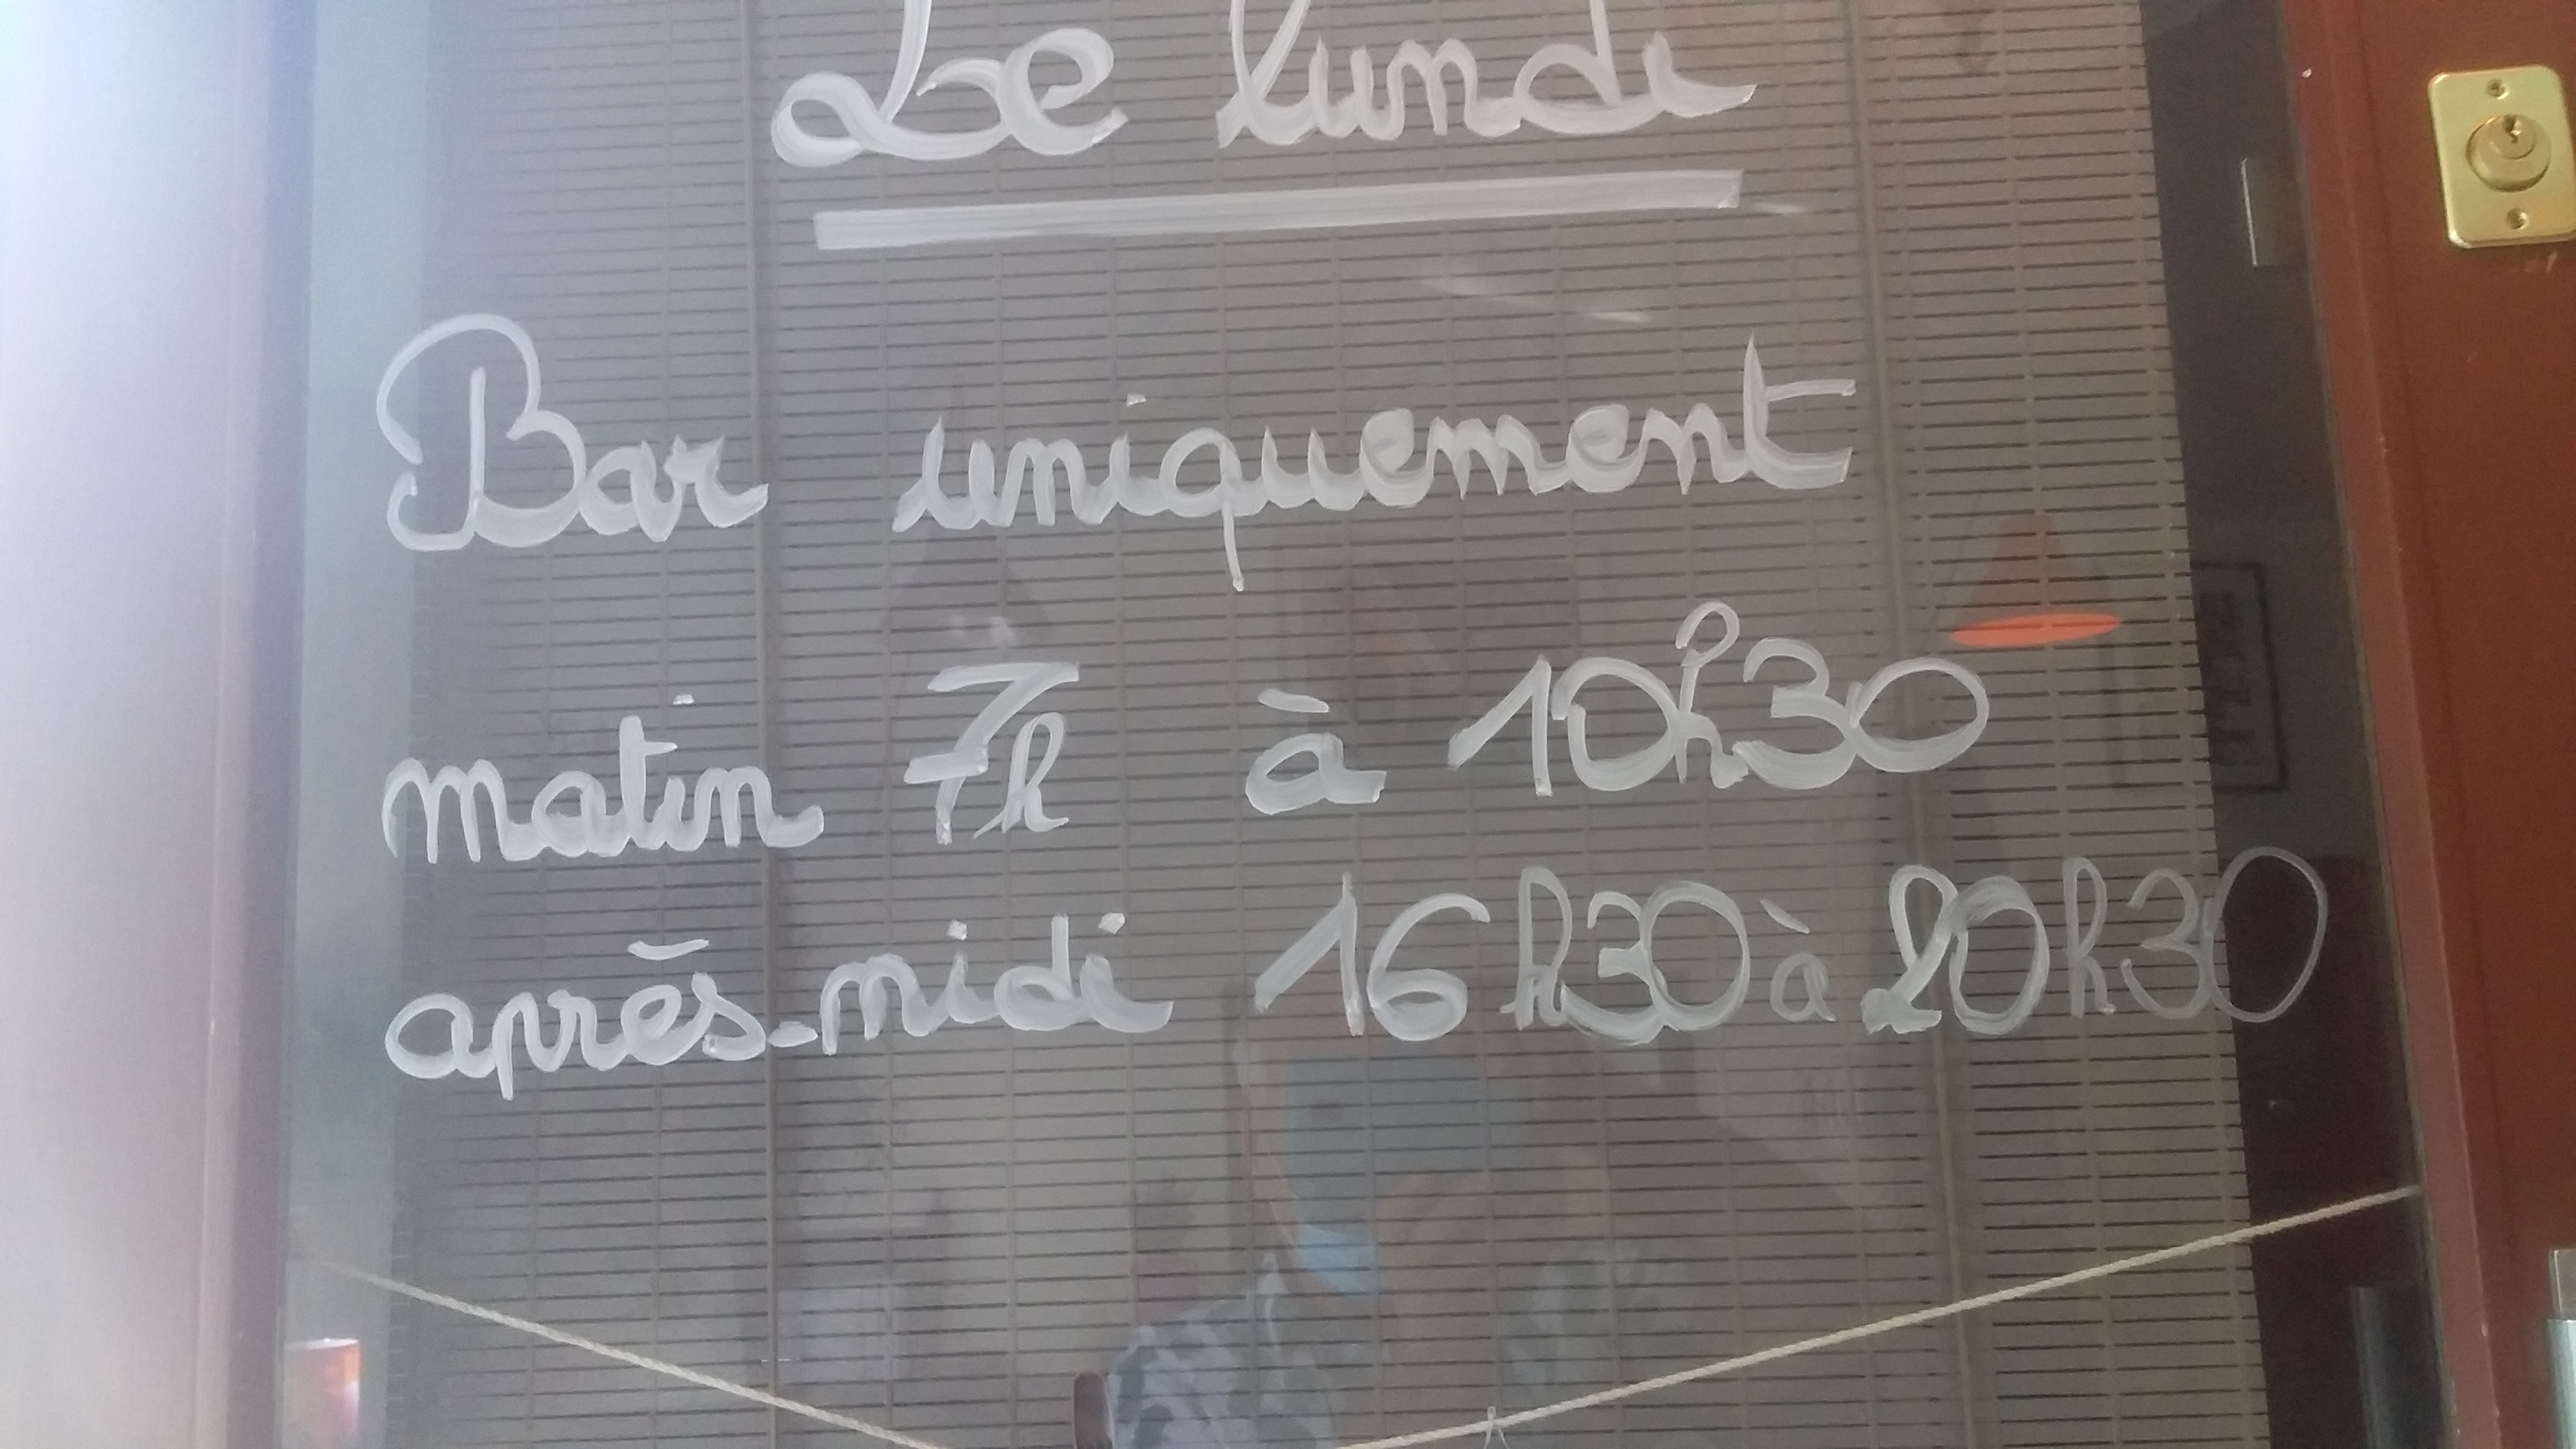 Le lundi
Bar uniquement
matin 7h à 10h30
après-midi 16h30 à 20h30